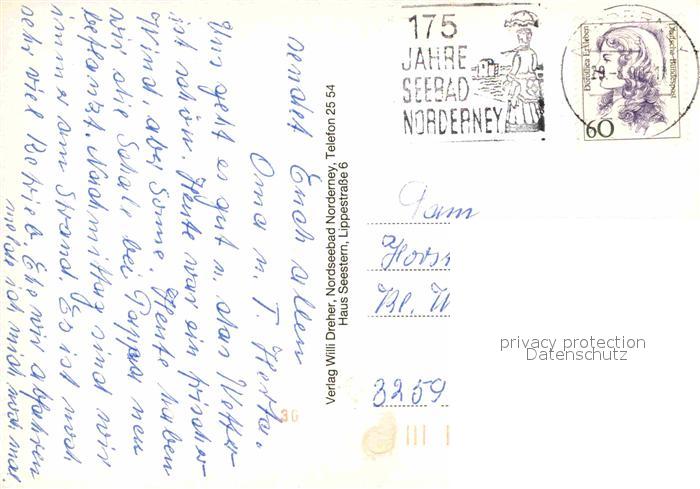 175
JAHRE
SEEBAD
NORDERNEY
Dorothea Erxleben
Deutsche Bundespost
60
sendet Euch allen
Oma u. T. Herta.
Uns geht es gut u. das Wetter
ist schön. Heute war ein frischer
Wind, aber Sonne. Heute haben
wir die Schale bei neu
bepflanzt. Nachmittag sind wir
immer am Strand. Es ist noch
sehr viel Betrieb Ehe wir abfahren
melde ich mich noch mal.
Verlag Willi Dreher, Nordseebad Norderney, Telefon 25 54
Haus Seestern, Lippestraße 6
Fam
Horst
Kl.
3259
36
privacy protection
Datenschutz